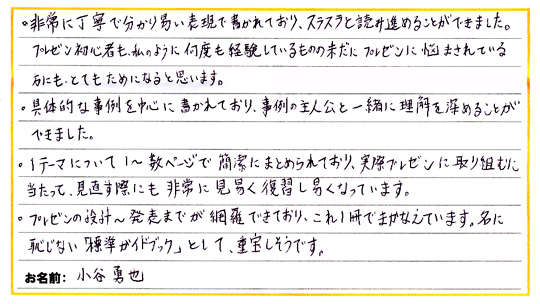 ・非常に丁寧で分かり易い表現で書かれており、スラスラと読み進めることができました。
プレゼン初心者も、私のように何度も経験しているものの未だにプレゼンに悩まされている
方にも、とてもためになると思います。
・具体的な事例を中心に書かれており、事例の主人公と一緒に理解を深めることが
できました。
・1テーマについて1〜数ページで簡潔にまとめられており、実際プレゼンに取り組むに
当たって、見直す際にも非常に見易く復習し易くなっています。
・プレゼンの設計〜発表までが網羅できており、これ1冊でまかなえています。名に
恥じない「標準ガイドブック」として、重宝しそうです。
お名前: 小谷 勇也